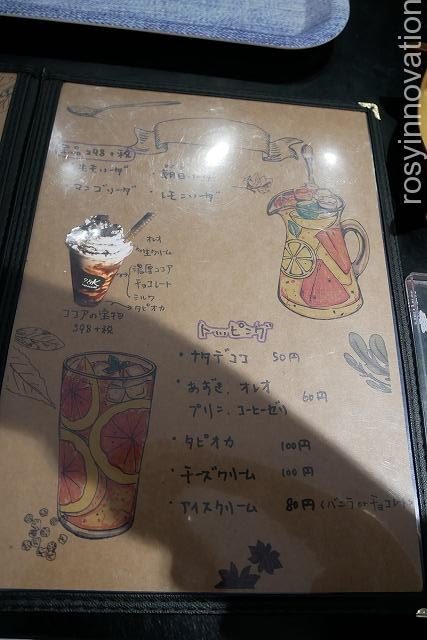 398+税
マンゴソーダ
・レモンソーダ
オレオ
生クリーム
濃厚ココア
チョコレート
ミルク
タピオカ
ココアの宝物
398+税
トッピング
・ナタデココ 50円
・あずき、オレオ
プリン、コーヒーゼリー 60円
・タピオカ 100円
・チーズクリーム 100円
・アイスクリーム 80円 (バニラ or チョコレ
rosyinnovation